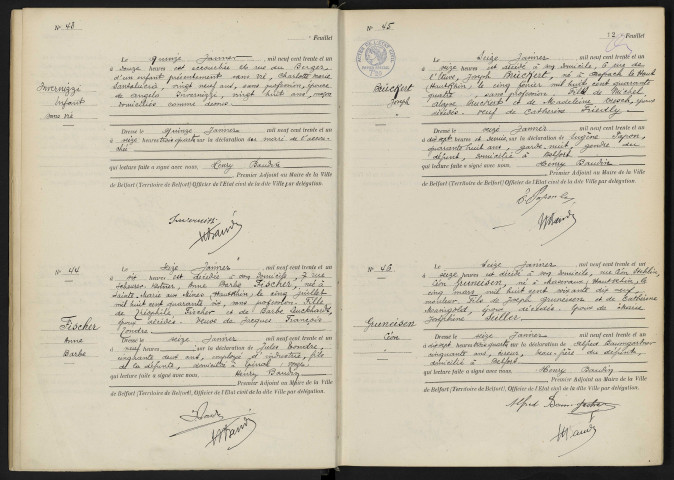 N° 43
Feuillet
Inveruzzi
Enfant
sans vie
Le quinze Janvier mil neuf cent trente et un
à douze heures est accouchée et rue du Berger
d'un enfant présentement sans vie, Charlotte Marie
vingt neuf ans, sans profession, épouse
de Angelo Inveruzzi, vingt huit ans,
domiciliés comme dessus
Dressé le quinze Janvier mil neuf cent trente et un
à seize heures trois quarts sur la déclaration du mari de l'accou-
chée
qui lecture faite a signé avec nous, Henry Baudin
Premier Adjoint au Maire de la Ville
de Belfort (Territoire de Belfort) Officier de l'Etat civil de la dite Ville par délégation.
N° 44
Fischer
Anne
Barbe
Le seize Janvier mil neuf cent trente et un
à dix heures est décédée à son domicile, 2 rue
Scheurer Kestner, Anne Barbe Fischer, née à
Sainte Marie aux Mines, Haut-Rhin, le cinq juillet
mil huit cent quarante six, sans profession. Fille
de Théophile Fischer et de Barbe Burckhardt,
époux décédés. Veuve de Jacques François
Dressé le seize Janvier mil neuf cent trente et un
à neuf heures sur la déclaration de Jules
cinquante deux ans, employé d'industrie, fils
de la défunte, domicilié à Epinal
qui lecture faite a signé avec nous, Henry Baudin
Premier Adjoint au Maire de la Ville
de Belfort (Territoire de Belfort), Officier de l'Etat civil de la dite Ville par délégation.
N° 45
12 Feuillet
Brückert
Joseph
Le seize Janvier mil neuf cent trente et un
à seize heures est décédé à son domicile, 2 rue de
l'Etuve, Joseph Brückert, né à Aspach le Haut
(Haut-Rhin), le cinq février mil huit cent quarante
quatre, sans profession. Fils de Michel
Brückert et de Madeleine époux
décédés. Veuf de Catherine
Dressé le seize Janvier mil neuf cent trente et un
à dix sept heures et demie sur la déclaration de Eugène
quarante huit ans, garde-nuit, gendre du
défunt, domicilié à Belfort
qui lecture faite a signé avec nous, Henry Baudin
Premier Adjoint au Maire de la Ville
de Belfort (Territoire de Belfort) Officier de l'Etat civil de la dite Ville par délégation.
N° 46
Gruneisen
Léon
Le seize Janvier mil neuf cent trente et un
à seize heures est décédé à son domicile, rue
Léon Gruneisen, né à Masevaux, Haut-Rhin, le
cinq mars mil huit cent soixante dix neuf,
mouleur. Fils de Joseph Gruneisen et de Catherine
époux décédés. Epoux de
Joséphine
Dressé le seize Janvier mil neuf cent trente et un
à dix sept heures trois quarts sur la déclaration de Alfred Baumgartner
cinquante ans, beau-frère du défunt,
domicilié à Belfort
qui lecture faite a signé avec nous, Henry Baudin
Premier Adjoint au Maire de la Ville
de Belfort (Territoire de Belfort), Officier de l'Etat civil de la dite Ville par délégation.